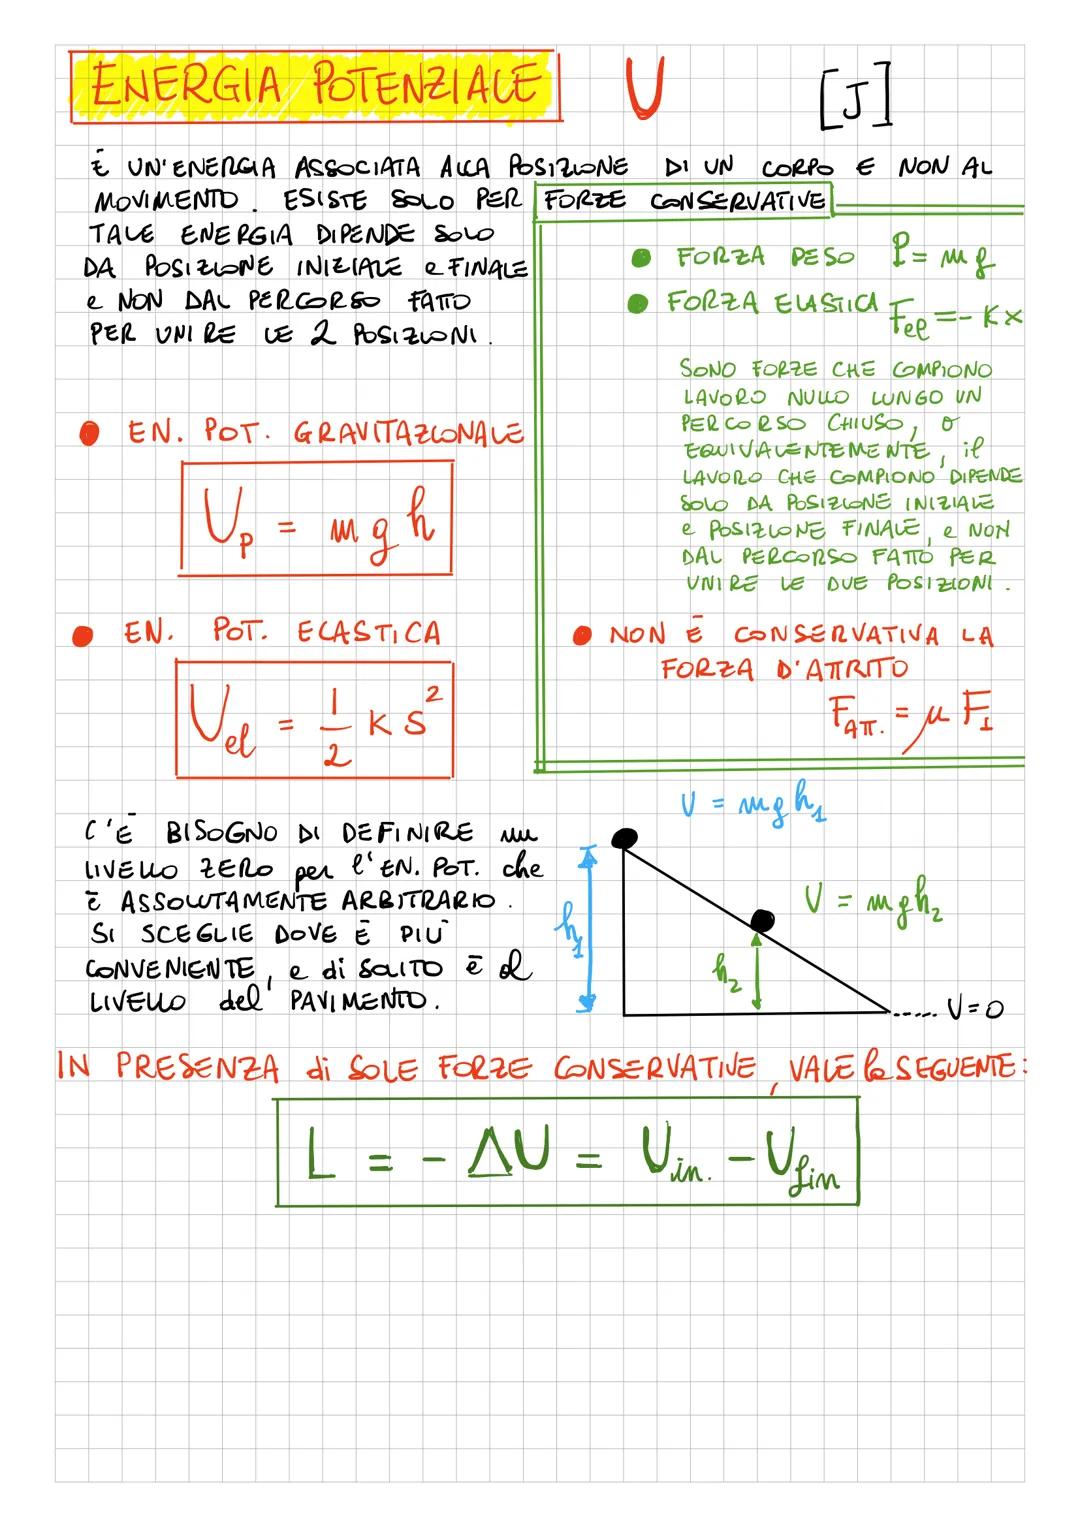 ENERGIA POTENZIALE U [J]
È UN'ENERGIA ASSOCIATA ALLA POSIZIONE DI UN CORPO E NON AL
MOVIMENTO. ESISTE SOLO PER FORZE CONSERVATIVE
TALE ENERGIA DIPENDE SOLO
DA POSIZIONE INIZIALE e FINALE
e NON DAL PERCORSO FATTO
PER UNIRE LE 2 POSIZIONI.
● FORZA PESO P = mg
● FORZA ELASTICA Fel = - Kx
SONO FORZE CHE COMPIONO
LAVORO NULLO LUNGO UN
PERCORSO CHIUSO, O
EQUIVALENTEMENTE, il
LAVORO CHE COMPIONO DIPENDE
SOLO DA POSIZIONE INIZIALE
e POSIZIONE FINALE, e NON
DAL PERCORSO FATTO PER
UNIRE LE DUE POSIZIONI.
● NON È CONSERVATIVA LA
FORZA D'ATTRITO
FATT. = μ F⊥
● EN. POT. GRAVITAZIONALE
Up = mgh
● EN. POT. ELASTICA
Uel = 1/2 K S²
C'È BISOGNO DI DEFINIRE un
LIVELLO ZERO per l'EN. POT. che
È ASSOLUTAMENTE ARBITRARIO.
SI SCEGLIE DOVE È PIÙ
CONVENIENTE, e di SOLITO è il
LIVELLO del' PAVIMENTO.
U = mgh₁
U = mgh₂
h₁
h₂
..... U = 0
IN PRESENZA di SOLE FORZE CONSERVATIVE, VALE la SEGUENTE:
L = - ΔU = Uin. - Ufin